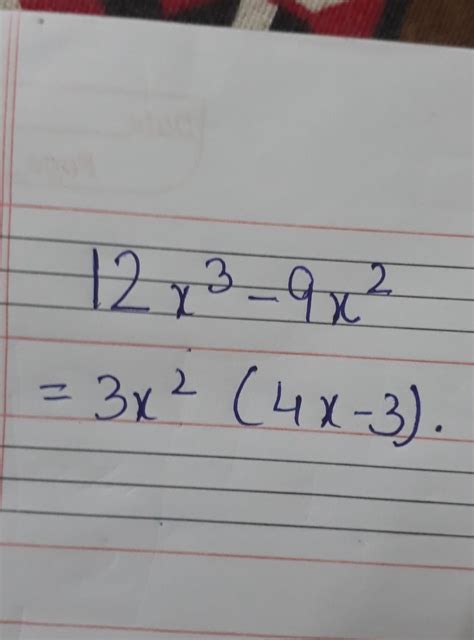 12x³ - 9x²
= 3x² (4x - 3).